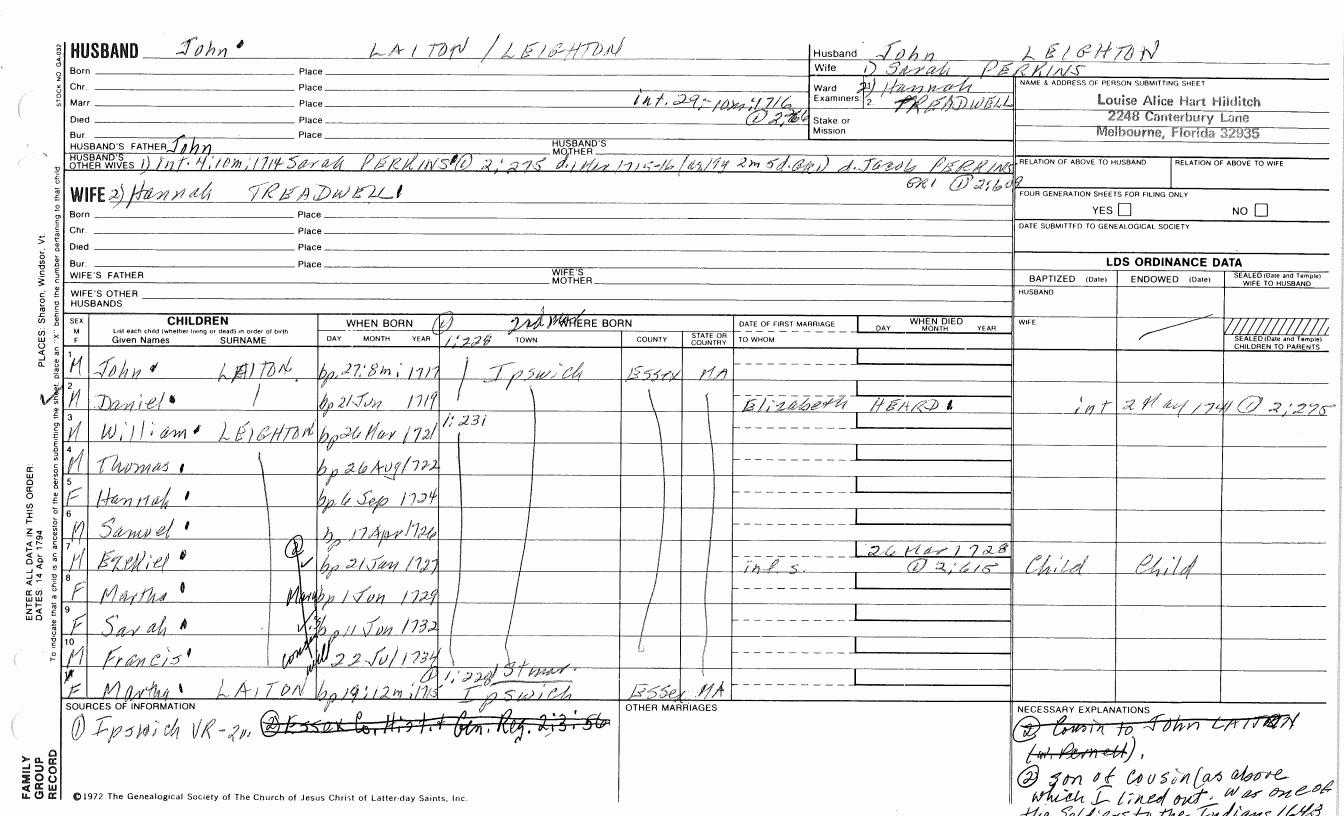 HUSBAND John LAITON / LEIGHTON
Born Place
Chr. Place
Marr Place int. 29: 10m: 1716
Died Place ① 2:
Bur Place
HUSBAND'S FATHER John HUSBAND'S MOTHER
HUSBAND'S OTHER WIVES 1) int. 4: 10m: 1714 Sarah PERKINS ① 2: 275 d. 1715-16 (as 19y 2m 5d. GR1) d. Jacob PERKINS
GR1 ① 2:609
WIFE 2) Hannah TREADWELL
Born Place
Chr. Place
Died Place
Bur Place
WIFE'S FATHER WIFE'S MOTHER
WIFE'S OTHER HUSBANDS
Husband John LEIGHTON
Wife 1) Sarah PERKINS
Ward Examiners 1 2 2) Hannah TREADWELL
Stake or Mission
NAME & ADDRESS OF PERSON SUBMITTING SHEET
Louise Alice Hart Hilditch
2248 Canterbury Lane
Melbourne, Florida 32935
RELATION OF ABOVE TO HUSBAND RELATION OF ABOVE TO WIFE
FOUR GENERATION SHEETS FOR FILING ONLY
YES NO
DATE SUBMITTED TO GENEALOGICAL SOCIETY
LDS ORDINANCE DATA
BAPTIZED (Date) ENDOWED (Date) SEALED (Date and Temple) WIFE TO HUSBAND
HUSBAND
WIFE
SEALED (Date and Temple) CHILDREN TO PARENTS
SEX M F CHILDREN List each child (whether living or dead) in order of birth Given Names SURNAME
WHEN BORN DAY MONTH YEAR
① 1:228 2nd WHERE BORN TOWN COUNTY STATE OR COUNTRY
DATE OF FIRST MARRIAGE TO WHOM
WHEN DIED DAY MONTH YEAR
1 M John LAITON bp. 27: 8m: 1717 Ipswich Essex MA
2 M Daniel bp 21 Jun 1719 Elizabeth HEARD int 2 May 1741 ① 2:275
3 M William LEIGHTON bp 26 Mar 1721 1:231
4 M Thomas bp 26 Aug 1722
5 F Hannah bp 6 Sep 1724
6 M Samuel bp 17 Apr 1726
7 M Ezekiel ② bp 21 Jan 1727 inf. s. 26 Mar 1728 ① 2:615 Child Child
8 F Martha bp 1 Jun 1729
9 F Sarah bp 11 Jun 1732
10 M Francis 22 Jul 1734
F Martha LAITON bp 19: 12m: 1715 ① 1:228 1st mar. Ipswich Essex MA
SOURCES OF INFORMATION
① Ipswich VR-2v. ② Essex Co. Hist. & Gen. Reg. 2:3: 56
OTHER MARRIAGES
NECESSARY EXPLANATIONS
② Cousin to John LAITON
(w. Pernell).
② son of cousin (as above
which I lined out. was one of
the Soldiers to the Indians 1643
©1972 The Genealogical Society of The Church of Jesus Christ of Latter-day Saints, Inc.
STOCK NO. GA-032
To indicate that a child is an ancestor of the person submitting the sheet, place an "X" behind the number pertaining to that child
ENTER ALL DATA IN THIS ORDER:
DATES: 14 Apr 1794 PLACES: Sharon, Windsor, Vt.
FAMILY
GROUP
RECORD